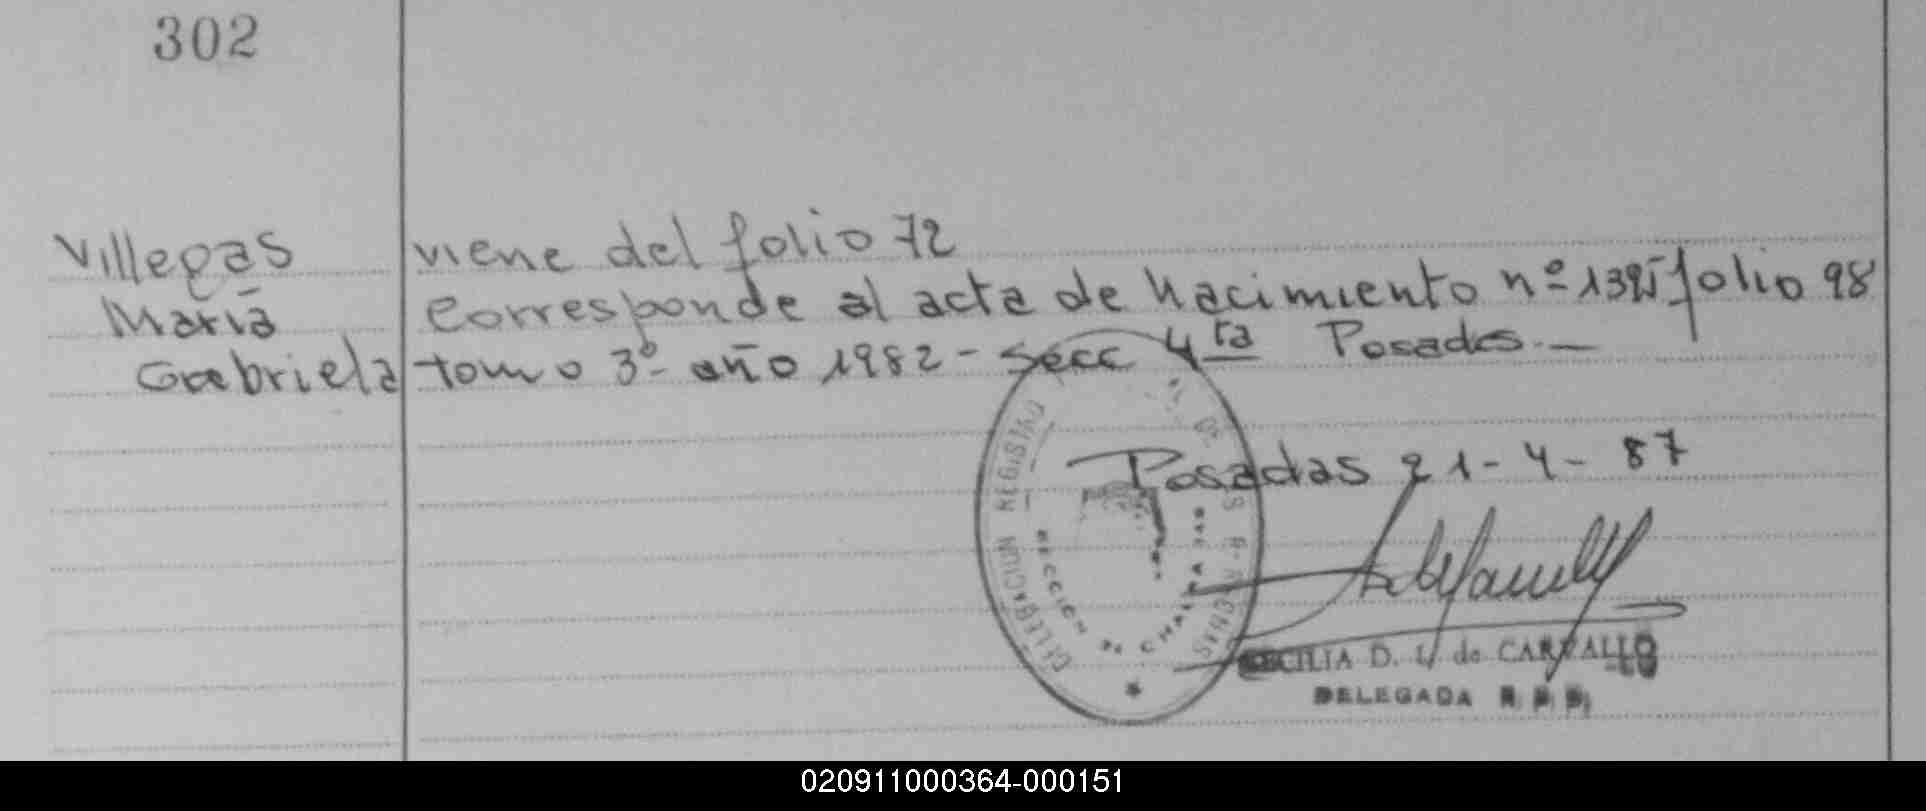 302
Villegas
María
Gabriela
viene del folio 72
Corresponde al acta de Nacimiento nº 1395 folio 98
tomo 3º año 1982 - Secc 4ta Posadas. —
DELEGACION REGISTRO DE LAS PERSONAS
SECCION DE CHACRA
Posadas 21 - 4 - 87
CECILIA D. L. de CARVALLO
DELEGADA
020911000364-000151